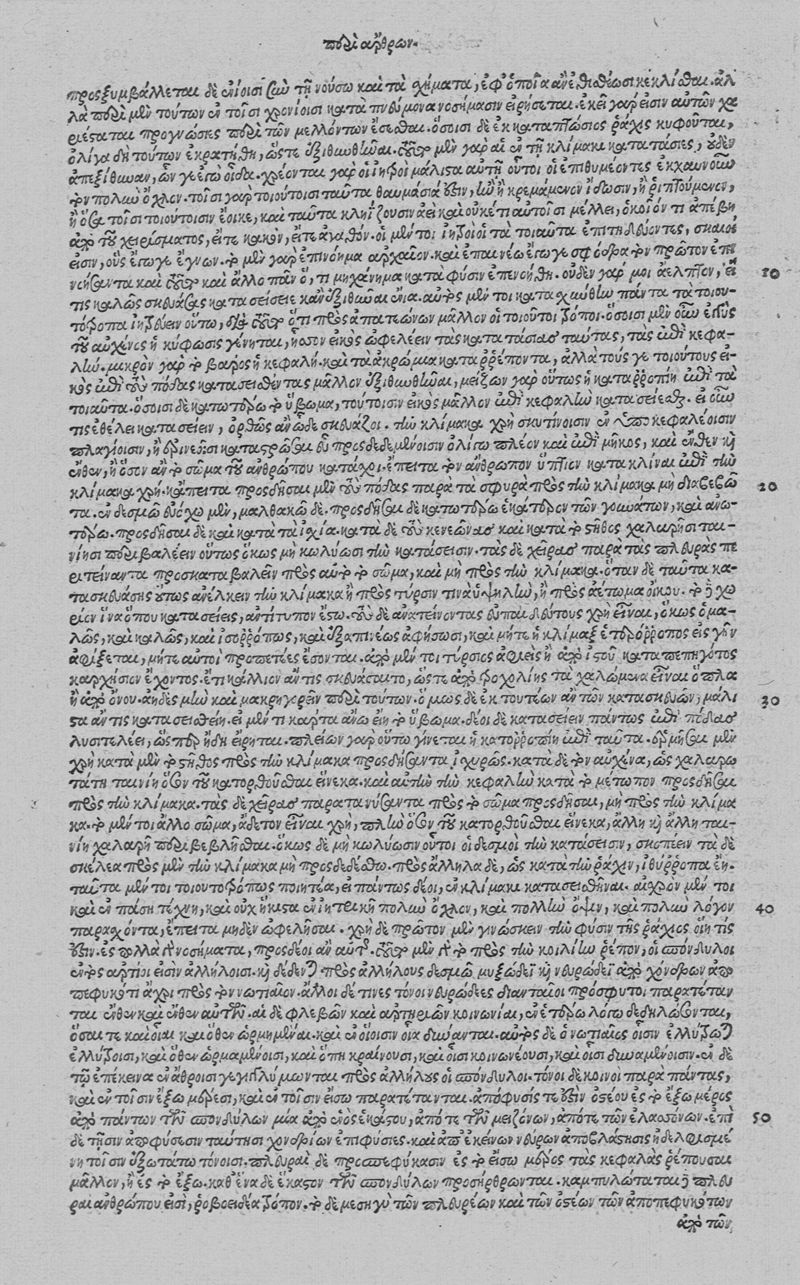 περὶ ἄρθρων.
προσξυμβάλλεται δὲ ἐνίοισι ξὺν τῇ νούσῳ καὶ τὰ σχήματα, ἐφ' ὁποῖα ἂν ἐθισθέωσι κεκλίσθαι. ἀλ
λὰ περὶ μὲν τούτων ἐν τοῖσι χρονίοισι κατὰ πνεύμονα νοσήμασιν εἰρήσεται. ἐκεῖ γάρ εἰσιν αὐτῶν χα
ριέσταται προγνώσιες περὶ τῶν μελλόντων ἔσεσθαι. ὅσοισι δὲ ἐκ καταπτώσιος ῥάχις κυφοῦται,
ὀλίγα δὴ τούτων ἐκρατήθη, ὥστε ἐξιθυνθῆναι. τοῦτο μὲν γὰρ αἱ ἐν τῇ κλίμακι κατατάσιες, οὐδένα
ἀπεξίθυναν, ὧν γε ἐγὼ οἶδα. χρέονται γὰρ οἱ ἰητροὶ μάλιστα αὐτῇ οὗτοι οἱ ἐπιθυμέοντες ἐκχαυνοῦν
τὸν πολὺν ὄχλον. τοῖσι γὰρ τοιούτοισι ταῦτα θαυμάσιά ἐστιν, ἢν ἢ κρεμάμενον ἴδωσιν, ἢ ῥιπτούμενον,
ἢ ὅσα τοῖσι τοιούτοισιν ἔοικε, καὶ ταῦτα κληΐζουσιν ἀεὶ καὶ οὐκέτι αὐτοῖσι μέλλει, ὁκοῖόν τι ἀπέβη
ἀπὸ τοῦ χειρίσματος, εἴτε κακὸν, εἴτε ἀγαθόν. οἱ μέντοι ἰητροὶ οἱ τὰ τοιαῦτα ἐπιτηδεύοντες, σκαιοί
εἰσιν, οὓς ἔγωγε ἔγνων. τὸ μὲν γὰρ ἐπινόημα ἀρχαῖον. καὶ ἐπαινέω ἔγωγε σφόδρα τὸν πρῶτον ἐπι
νοήσαντα καὶ τοῦτο καὶ ἄλλο πᾶν ὅ, τι μηχάνημα κατὰ φύσιν ἐπενοήθη. οὐδὲν γάρ μοι ἄελπτον, εἴ 10
τις καλῶς σκευάσας κατασείσειε κἂν ἐξιθυνθῆναι ἔνια. αὐτὸς μέντοι κατῃσχύνθην πάντα τὰ τοιου-
τότροπα ἰητρεύειν οὕτω, διὰ τοῦτο ὅτι πρὸς ἀπατεώνων μᾶλλον οἱ τοιοῦτοι τρόποι. ὅσοισι μὲν οὖν ἐγγὺς
τοῦ αὐχένος ἡ κύφωσις γίνηται, ἧσσον εἰκὸς ὠφελέειν τὰς κατατάσιας ταύτας, τὰς ἐπὶ κεφα-
λήν. μικρὸν γὰρ τὸ βάρος ἡ κεφαλὴ. καὶ τὰ ἀκρώμια καταῤῥέποντα, ἀλλὰ τούς γε τοιούτους εἰ-
κὸς ἐπὶ τοὺς πόδας κατασεισθέντας μᾶλλον ἐξιθυνθῆναι, μείζων γὰρ οὕτως ἡ καταῤῥοπίη ἐπὶ τὰ
τοιαῦτα. ὅσοισι δὲ κατωτέρω τὸ ὕβωμα, τούτοισιν εἰκὸς μᾶλλον ἐπὶ κεφαλὴν κατασείεσθαι. εἰ οὖν
τις ἐθέλει κατασείειν, ὀρθῶς ἂν ὧδε σκευάζοι. τὴν κλίμακα χρὴ σκυτίνοισιν ἐν ὑποκεφαλέοισιν
πλαγίοισιν, ἢ ἐρινέοισι καταστρῶσαι εὖ προσδεδεμένοισιν ὀλίγῳ πλέον καὶ ἐπὶ μῆκος, καὶ ἔνθεν καὶ
ἔνθεν, ἢ ὅσον ἂν τὸ σῶμα τοῦ ἀνθρώπου κατάσχοι. ἔπειτα τὸν ἄνθρωπον ὕπτιον κατακλῖναι ἐπὶ τὴν
κλίμακα χρή. κἄπειτα προσδῆσαι μὲν τοὺς πόδας παρὰ τὰ σφυρὰ πρὸς τὴν κλίμακα μὴ διαβεβῶ 20
τα. ἐν δεσμῷ εὐόχῳ μὲν, μαλθακῷ δέ. προσδῆσαι δὲ κατωτέρω ἑκάτερον τῶν γουνάτων, καὶ ἀνω-
τέρω. προσδῆσαι δὲ καὶ κατὰ τὰ ἰσχία. κατὰ δὲ τοὺς κενεῶνας καὶ κατὰ τὸ στῆθος χαλαρῇσι ται-
νίῃσι περιβαλέειν οὕτως ὅκως μὴ κωλύωσι τὴν κατάσεισιν. τὰς δὲ χεῖρας παρὰ τὰς πλευρὰς πε
ριτείναντα προσκαταβαλεῖν πρὸς αὐτὸ τὸ σῶμα, καὶ μὴ πρὸς τὴν κλίμακα. ὅταν δὲ ταῦτα κα-
τασκευάσῃς οὕτως ἀνέλκειν τὴν κλίμακα ἢ πρὸς τύρσιν τινὰ ὑψηλὴν, ἢ πρὸς ἀέτωμα οἴκου. τὸ δὲ χω
ρίον ἵνα ὅπου κατασείεις, ἀντίτυπον ἔστω. τοὺς δὲ ἀνατείνοντας εὐπαιδεύτους χρὴ εἶναι, ὅκως ὁμα-
λῶς, καὶ καλῶς, καὶ ἰσοῤῥόπως, καὶ ἐξαπιναίως ἀφήσωσι, καὶ μήτε ἡ κλίμαξ ἑτερόῤῥοπος εἰς γῆν
ἀφίξεται, μήτε αὐτοὶ προπετέες ἔσονται. ἀπὸ μέντοι τύρσιος ἀφιεὶς ἢ ἀπὸ ἱστοῦ καταπεπηγότος
καρχήσιον ἔχοντος. ἔτι κάλλιον ἄν τις σκευάσαιτο, ὥστε ἀπὸ τροχιλίης τὰ χαλώμενα εἶναι ὅπλα
ἢ ἀπὸ ὄνου. ἀηδὲς μὴν καὶ μακρηγορεῖν περὶ τούτων. ὅμως δὲ ἐκ τουτέων ἂν τῶν κατασκευῶν, μάλι 30
στα ἄν τις κατασεισθείη. εἰ μέντοι κάρτα ἄνω εἴη τὸ ὕβωμα. δέοι δὲ κατασείειν πάντως ἐπὶ πόδας
λυσιτελέει, ὥσπερ ἤδη εἴρηται. πλείων γὰρ οὕτω γίνεται ἡ καταῤῥοπίη ἐπὶ ταῦτα. ἐρμῆσαι μὲν
χρὴ κατὰ μὲν τὸ στῆθος πρὸς τὴν κλίμακα προσδήσαντα ἰσχυρῶς. κατὰ δὲ τὸν αὐχένα, ὡς χαλαρω
τάτῃ ταινίῃ ὅσον τοῦ κατορθοῦσθαι ἕνεκα. καὶ αὐτὴν τὴν κεφαλὴν κατὰ τὸ μέτωπον προσδῆσαι
πρὸς τὴν κλίμακα. τὰς δὲ χεῖρας παρατανύσαντα πρὸς τὸ σῶμα προσδῆσαι, μὴ πρὸς τὴν κλίμα
κα. τὸ μέντοι ἄλλο σῶμα, ἄδετον εἶναι χρὴ, πλὴν ὅσον τοῦ κατορθοῦσθαι ἕνεκα, ἄλλῃ καὶ ἄλλῃ ται-
νίῃ χαλαρῇ περιβεβλῆσθαι. ὅκως δὲ μὴ κωλύωσιν οὗτοι οἱ δεσμοὶ τὴν κατάσεισιν, σκοπέειν τὰ δὲ
σκέλεα πρὸς μὲν τὴν κλίμακα μὴ προσδεδέσθω. πρὸς ἄλληλα δὲ, ὡς κατὰ τὴν ῥάχιν, ἰθύῤῥοπα ἔῃ.
ταῦτα μέντοι τοιουτοτρόπως ποιητέα, εἰ πάντως δέοι, ἐν κλίμακι κατασεισθῆναι. αἰσχρὸν μέντοι
καὶ ἐν πάσῃ τέχνῃ, καὶ οὐχ ἥκιστα ἐν ἰητρικῇ πολὺν ὄχλον, καὶ πολλὴν ὄψιν, καὶ πολὺν λόγον 40
παρασχόντα, ἔπειτα μηδὲν ὠφελῆσαι. χρὴ δὲ πρῶτον μὲν γινώσκειν τὴν φύσιν τῆς ῥάχιος οἵη τίς
ἐστιν. ἐς πολλὰ γὰρ νοσήματα, προσδέοι ἂν αὐτῆς. τοῦτο μὲν γὰρ τὸ πρὸς τὴν κοιλίην ῥέπον, οἱ σπόνδυλοι
ἐντὸς ἄρτιοί εἰσιν ἀλλήλοισι. καὶ δέδενται πρὸς ἀλλήλους δεσμῷ μυξώδει καὶ νευρώδει ἀπὸ χόνδρων ἀπο
πεφυκότι ἄχρι πρὸς τὸν νωτιαῖον. ἄλλοι δέ τινες τόνοι νευρώδεες διανταῖοι πρόσφυτοι παρατέταν
ται ἔνθεν καὶ ἔνθεν αὐτῶν. αἱ δὲ φλεβῶν καὶ ἀρτηριῶν κοινωνίαι, ἐν ἑτέρῳ λόγῳ δεδηλώσονται,
ὅσαι τε καὶ οἷαι καὶ ὅθεν ὡρμημέναι. καὶ ἐν οἵοισιν οἷα δύνανται. αὐτὸς δὲ ὁ νωτιαῖος οἷσιν ἐλλύτρωται
ἐλλύτροισι, καὶ ὅθεν ὡρμαμένοισι, καὶ ὅπη κραίνουσι, καὶ οἷσι κοινωνέουσι, καὶ οἷσι δυναμένοισιν. ἐν δὲ
τῷ ἐπέκεινα ἐν ἄθροισι γεγιγγλύμωνται πρὸς ἀλλήλους οἱ σπόνδυλοι. τόνοι δὲ κοινοὶ παρὰ πάντας,
καὶ ἐν τοῖσιν ἔξω μέρεσι, καὶ ἐν τοῖσιν εἴσω παρατέτανται. ἀπόφυσίς τέ ἐστιν ὀστέου ἐς τὸ ἔξω μέρος
ἀπὸ πάντων τῶν σπονδύλων μία ἀπὸ ἑνὸς ἑκάστου, ἀπό τε τῶν μειζόνων, ἀπό τε τῶν ἐλασσόνων. ἐπὶ 50
δὲ τῇσιν ἀποφύσεσιν ταύτῃσι χονδρίων ἐπιφύσιες. καὶ ἀπ' ἐκείνων νεύρων ἀποβλάστησις ἠδελφισμέ
νη τοῖσιν ἐξωτάτω τόνοισι. πλευραὶ δὲ προσπεφύκασιν ἐς τὸ εἴσω μέρος τὰς κεφαλὰς ῥέπουσαι
μᾶλλον, ἢ ἐς τὸ ἔξω. καθ' ἕνα δὲ ἕκαστον τῶν σπονδύλων προσήρθρωνται. καμπυλώταται γὰρ πλευ
ραὶ ἀνθρώπου εἰσὶ, ῥοβοειδέα τρόπον. τὸ δὲ μεσηγὺ τῶν πλευρέων καὶ τῶν ὀστέων τῶν ἀποπεφυκότων
ἀπὸ τῶν